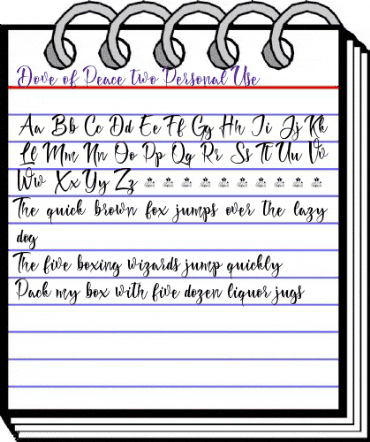 Dove of Peace two Personal Use
Aa Bb Cc Dd Ee Ff Gg Hh Ii Jj Kk
Ll Mm Nn Oo Pp Qq Rr Ss Tt Uu Vv
Ww Xx Yy Zz
The quick brown fox jumps over the lazy
dog
The five boxing wizards jump quickly
Pack my box with five dozen liquor jugs